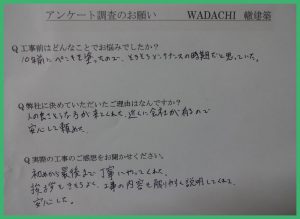 アンケート調査のお願い WADACHI 轍建築
Q 工事前はどんなことでお悩みでしたか？
10年前にペンキを塗ったので、そろそろメンテナンスの時期だと思っていた。
Q 弊社に決めていただいたご理由はなんですか？
人の良さそうな方が来てくれて、近くに会社が有るので
安心して頼めた
Q 実際の工事のご感想をお聞かせください。
初めから最後まで丁寧にやってくれた。
挨拶もきもちよく、工事の内容も解りやすく説明してくれて
安心した。